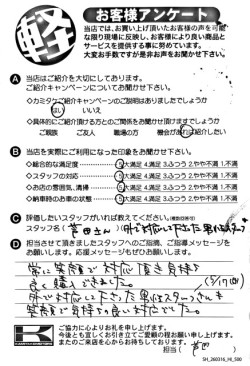 軽
お客様アンケート
当店では、お買い上げ頂いたお客様の声を可能
な限り現場に反映し、お客様により良い商品と
サービスを提供する事に努めています。
大変お手数ですが是非お声をお聞かせ下さい。
A 当店はご紹介を大切にしております。
ご紹介キャンペーンについてお聞かせ下さい。
◇カミタケご紹介キャンペーンのご説明はありましたでしょうか
はい いいえ
◇具体的にご紹介頂ける方とのご関係をお聞かせ頂けますでしょうか
ご親族 ご友人 職場の方 機会があれば紹介したい
B 当店を実際にご利用になった印象をお聞かせ下さい。
◇総合的な満足度 5大満足 4.満足 3.ふつう 2.やや不満 1.不満
◇スタッフの対応 5大満足 4.満足 3.ふつう 2.やや不満 1.不満
◇お店の雰囲気、清掃 5大満足 4.満足 3.ふつう 2.やや不満 1.不満
◇納車時のお車の状態 5大満足 4.満足 3.ふつう 2.やや不満 1.不満
C 評価したいスタッフがいれば教えてください。(複数回答可)
スタッフ名( さん)(外で対応して下さった男性スタッフ
D 担当させて頂きましたスタッフへのご指摘、ご指導メッセージを
お願いします。応援メッセージもぜひお願いします。
常に笑顔で対応頂き気持ち
良く購入できました。 (5/17(日)
外で対応して下さった男性スタッフさんも
笑顔で気持ちの良い対応でした。
ご協力に心よりお礼を申し上げます。
今後とも宜しくお引き立てご愛顧の程お願い申し上げます。
またのご来店を心からお待ちしております。
担当( )
SH_260316_HI_500